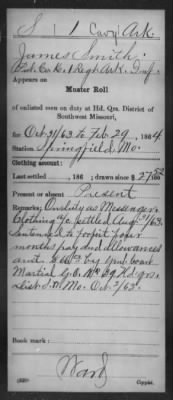 S | 1 | Cav | Ark
James Smith
Pvt. Co. K. 1 Regt Ark. Inf.
Appears on
Muster Roll
of enlisted men on duty at Hd. Qrs. District of
Southwest Missouri,
for Oct 31/63 to Feb 29, 1864
Station Springfield, Mo.
Clothing account:
Last settled , 186 ; drawn since $27
Present or absent Present
Remarks: On duty as Messenger.
Clothing a/c settled Aug. 31/63.
Sentenced to forfeit four
months pay and allowances
by Genl Court
Martial G.O. No Hd. Qrs.
Dist S.W. Mo. Oct 2/63.
Book mark:
Ward
Copyist.